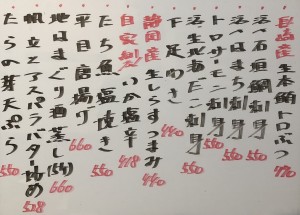 長崎産生本鮪トロぶつ 770
活〆石垣鯛刺身 550
活〆いさき刺身 550
トロサーモン刺身 550
活生北あだこ刺身 550
下足わさ 440
静岡産生しらすつまみ 440
自家製いか塩辛 418
たち魚塩焼き 550
平目唐揚げ 660
地はまぐり酒蒸し(5ヶ) 660
帆立とアスパラバター炒め 528
たらの芽天ぷら 550